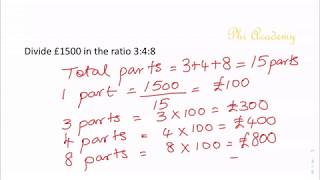 Phi Academy
Divide £1500 in the ratio 3:4:8
Total parts = 3+4+8 = 15 parts
1 part = 1500/15 = £100
3 parts = 3 x 100 = £300
4 parts = 4 x 100 = £400
8 parts = 8 x 100 = £800